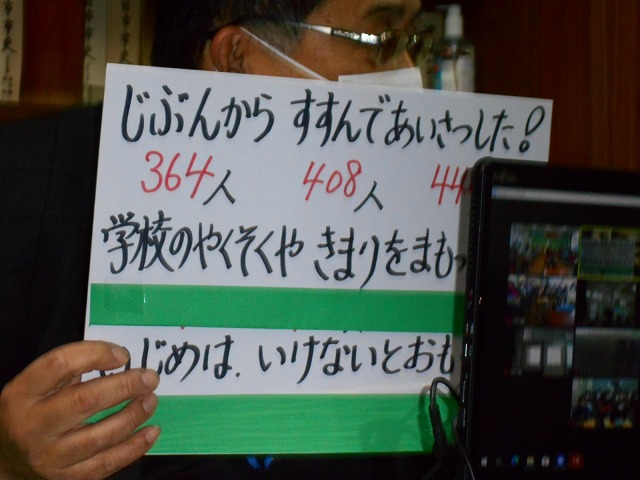 じぶんから すすんであいさつした!
364人 408人 44
学校のやくそくや きまりをまもっ
いじめは、いけないとおも
FUJITSU